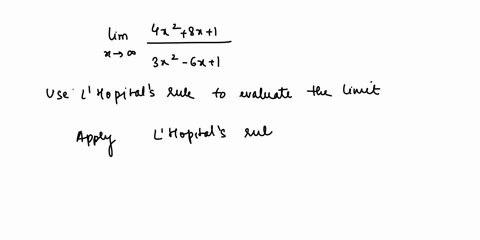 lim x→∞ (4x²+8x+1)/(3x²-6x+1)
Use L'Hopital's rule to evaluate the limit
Apply L'Hopital's rul